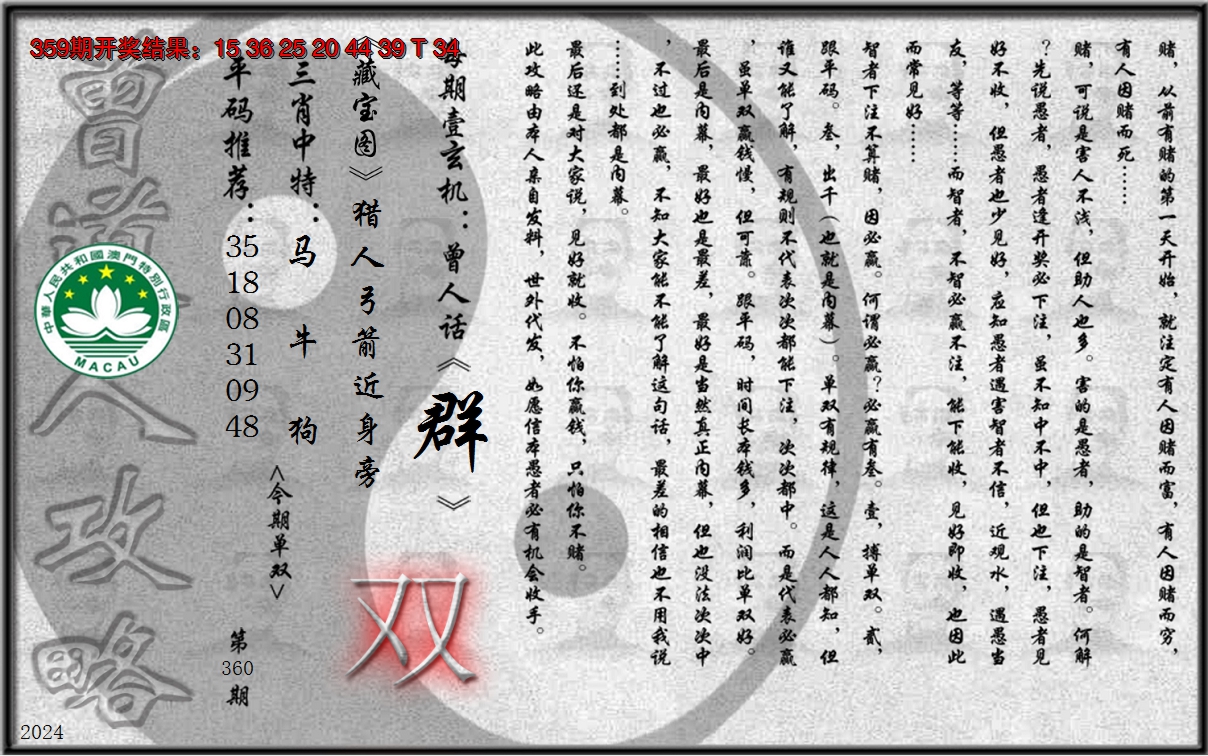 359期开奖结果：15 36 25 20 44 39 T 34
赌，从前有赌的第一天开始，就注定有人因赌而富，有人因赌而穷，
有人因赌而死……
赌，可说是害人不浅，但助人也多。害的是愚者，助的是智者。何解
？先说愚者，愚者逢开奖必下注，虽不知中不中，但也下注，愚者见
好不收，但愚者也少见好，应知愚者遇害智者不信，近观水，遇愚当
友，等等……而智者，不智必赢不注，能下能收，见好即收，也因此
而常见好……
智者下注不算赌，因必赢。何谓必赢？必赢有叁。壹，搏单双。贰，
跟平码。叁，出千（也就是内幕）。单双有规律，这是人人都知，但
谁又能了解，有规则不代表次次都能下注，次次都中。而是代表必赢
，虽单双赢钱慢，但可靠。跟平码，时间长本钱多，利润比单双好。
最后是内幕，最好也是最差，最好是当然真正内幕，但也没法次次中
，不过也必赢，不知大家能不能了解这句话，最差的相信也不用我说
……到处都是内幕。
最后还是对大家说，见好就收。不怕你赢钱，只怕你不赌。
此攻略由本人亲自发料，世外代发，如愿信本愚者必有机会收手。
每期壹玄机：曾人话《群》
《藏宝图》猎人弓箭近身旁
双
三肖中特：马 牛 狗
<今期单双>
平码推荐：35 18 08 31 09 48
第360期
曾道人攻略
中華人民共和國澳門特別行政區
MACAU
2024